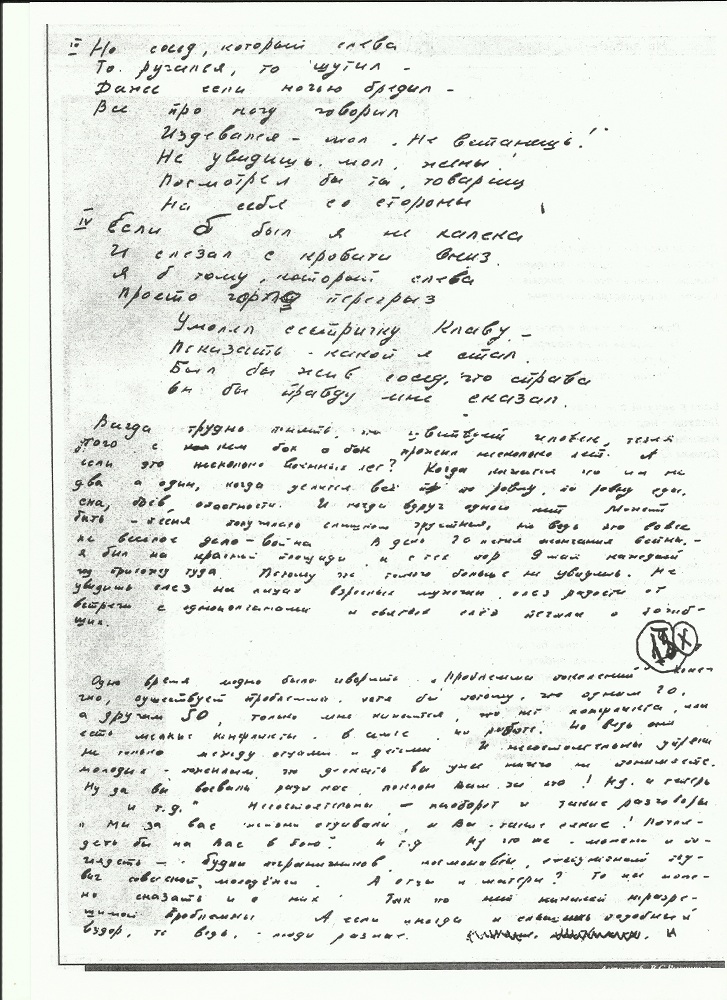 III Но сосед, который слева
То ругался, то шутил -
Даже если ночью бредил -
Все про ногу говорил
Издевался - мол, Не встанешь!
Не увидишь, мол, жены!
Посмотрел бы ты, товарищ
На себя со стороны
IV Если б был я не калека
И слезал с кровати вниз
Я б тому, который слева
Просто горло перегрыз
Умолял сестричку Клаву -
Показать - какой я стал
Был бы жив сосед, что справа
Он бы правду мне сказал.
Всегда трудно понять, что человек, тело
того с кем бок о бок прожил несколько лет. А
если это несколько военных лет? Когда кажется что их не
два а один, когда делится всё по ровну, по ровну еды,
сна, боёв, опасности. И когда вдруг одного нет Может
быть - песня получилась слишком грустная, но ведь это вовсе
не веселое дело - война В день 20 летия окончания войны -
я был на красной площади, и с тех пор 9 мая каждый
год прихожу туда. Потому что такого больше не увидишь. Не
увидишь слез на лицах взрослых мужчин, слез радости от
встречи с однополчанами и светлых слёз печали о погиб-
ших.
Одно время модно было говорить "Проблемы поколений" Конеч-
но, существует проблема, хотя бы потому, что одним 20,
а другим 50, только мне кажется, что нет конфликта, или
есть мелкие конфликты в семье, на работе. Но ведь они
не только между отцами и детьми И несостоятельны упреки
молодых - пожилым, что дескать вы уже ничего не понимаете.
Ну да вы воевали ради нас, поклон вам за это! Ну, а теперь
и т.д." Несостоятельны, - наоборот и такие разговоры
"Мы за вас жизни отдавали, а Вы - такие сякие! Погля-
деть бы на Вас в бою" и т.д Ну что же - можно и по-
глядеть - будни пограничников, космонавты,
советской молодёжи. А отцы и матери? То же мож-
но сказать и о них Так что нет никакой неразре-
шимой проблемы А если иногда и слышишь подобный
вздор, то ведь - люди разные. И